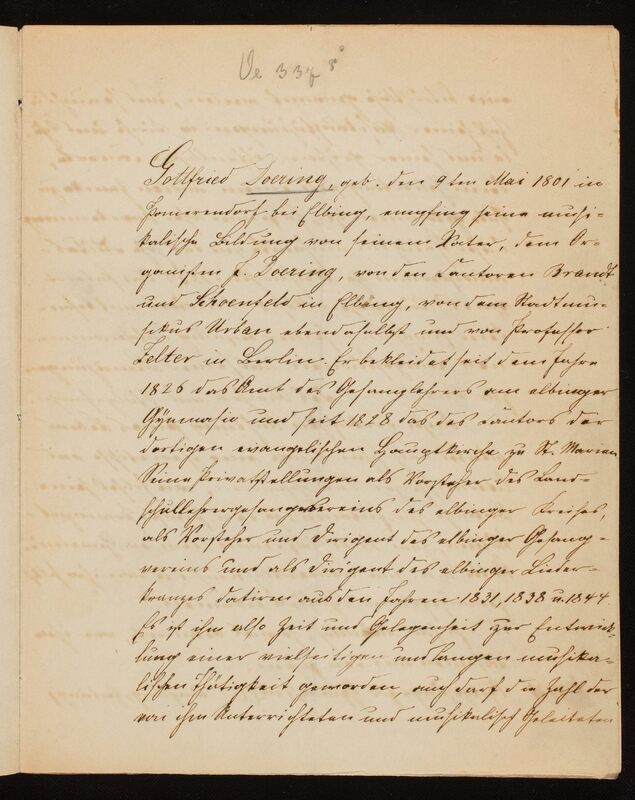 Ve 337 8°
Gottfried Doering, geb. den 9ten Mai 1801 in
Pomerendorf bei Elbing, empfing seine musi-
kalische Bildung von seinem Vater, dem Or-
ganisten J. Doering, von den Cantoren Brandt
und Schoenfeld in Elbing, von dem Stadtmu-
sikus Urban ebendaselbst und von Professor
Zelter in Berlin. Er bekleidet seit dem Jahre
1826 das Amt des Gesanglehrers am elbinger
Gÿmnasio und seit 1828 das des Cantors der
dortigen evangelischen Hauptkirche zu St. Marien
Seine Privatstellungen als Vorsteher des Land-
schullehrergesangvereins des elbinger Kreises,
als Vorsteher und Dirigent des elbinger Gesang-
vereins und als Dirigent des elbinger Lieder-
kranzes datiren aus den Jahren 1831, 1838 u. 1844.
Es ist ihm also Zeit und Gelegenheit zur Entwick-
lung einer vielseitigen und langen musika-
lischen Thätigkeit geworden, auch darf die Zahl der
von ihm Unterrichteten und musikalisch Geleiteten